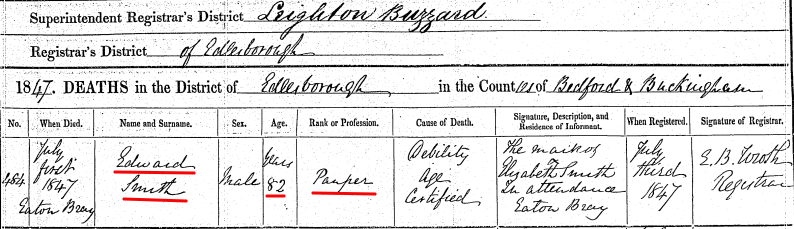 Superintendent Registrar's District Leighton Buzzard
Registrar's District of Edlesborough
1847. DEATHS in the District of Edlesborough in the Counties of Bedford & Buckingham
No. When Died. Name and Surname. Sex. Age. Rank or Profession. Cause of Death. Signature, Description, and Residence of Informant. When Registered. Signature of Registrar.
484
July
first
1847
Eaton Bray
Edward
Smith
Male
Years
82
Pauper
Debility
Age
Certified
The mark of
Elizabeth Smith
In attendance
Eaton Bray
July
third
1847
E. B. Wroth
Registrar